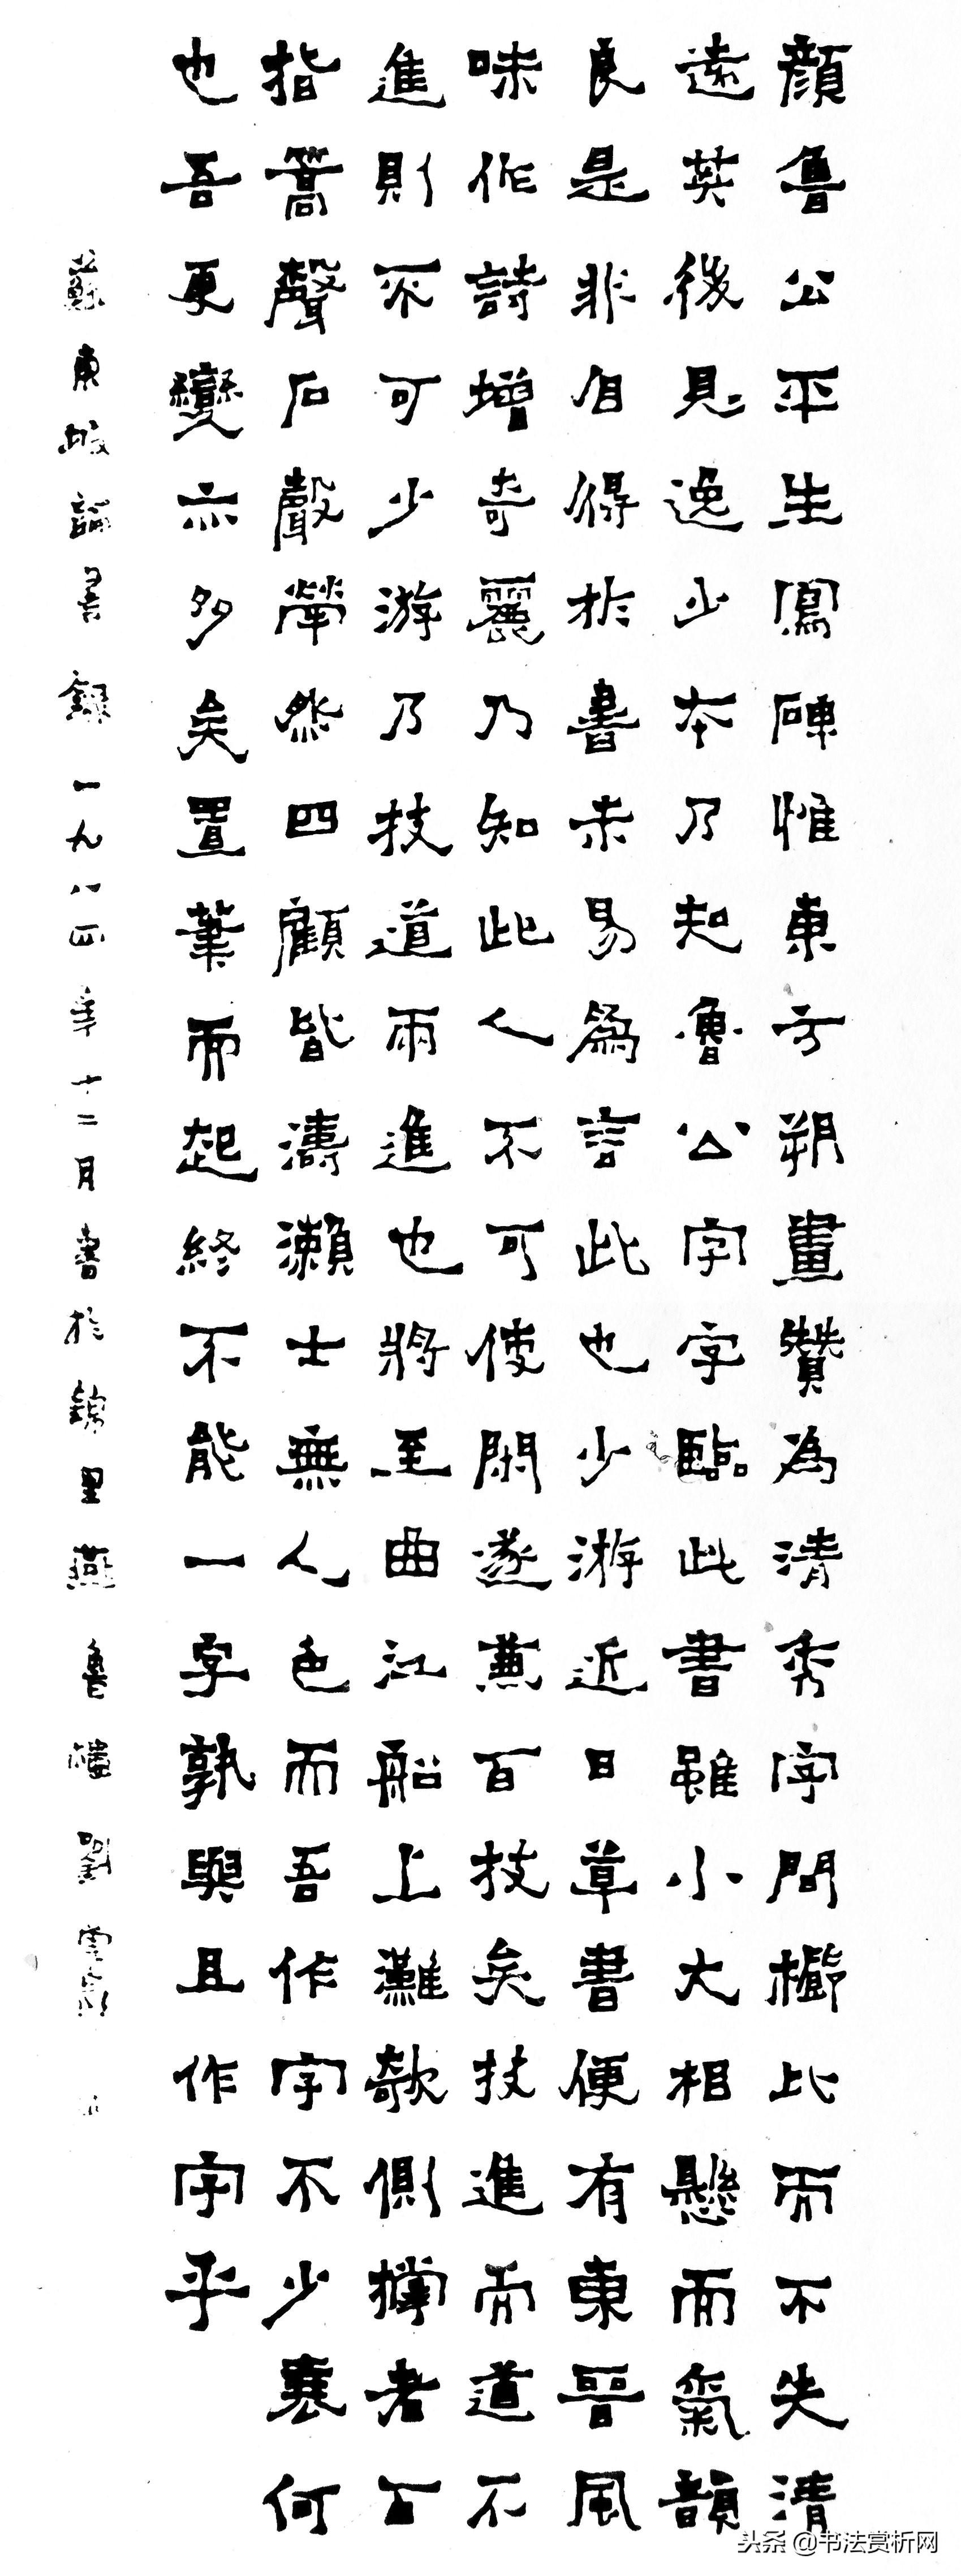 顏魯公平生寫碑惟東方朔畫贊為清秀字間櫛比而不失清
遠其後見逸少本乃知魯公字字臨此書雖小大相懸而氣韻
良是非自得於書未易為言此也少游近日草書便有東晉風
味作詩增奇麗乃知此人不可使閑遂兼百技矣技進而道不
進則不可少游乃技道兩進也將至曲江船上灘欹側撐者百
指篙聲石聲犖然四顧皆濤瀨士無人色而吾作字不少衰何
也吾更變亦多矣置筆而起終不能一字孰與且作字乎
蘇東坡論書錄一九八四年十二月書於錦里燕魯樓劉雲泉
头条 @书法赏析网